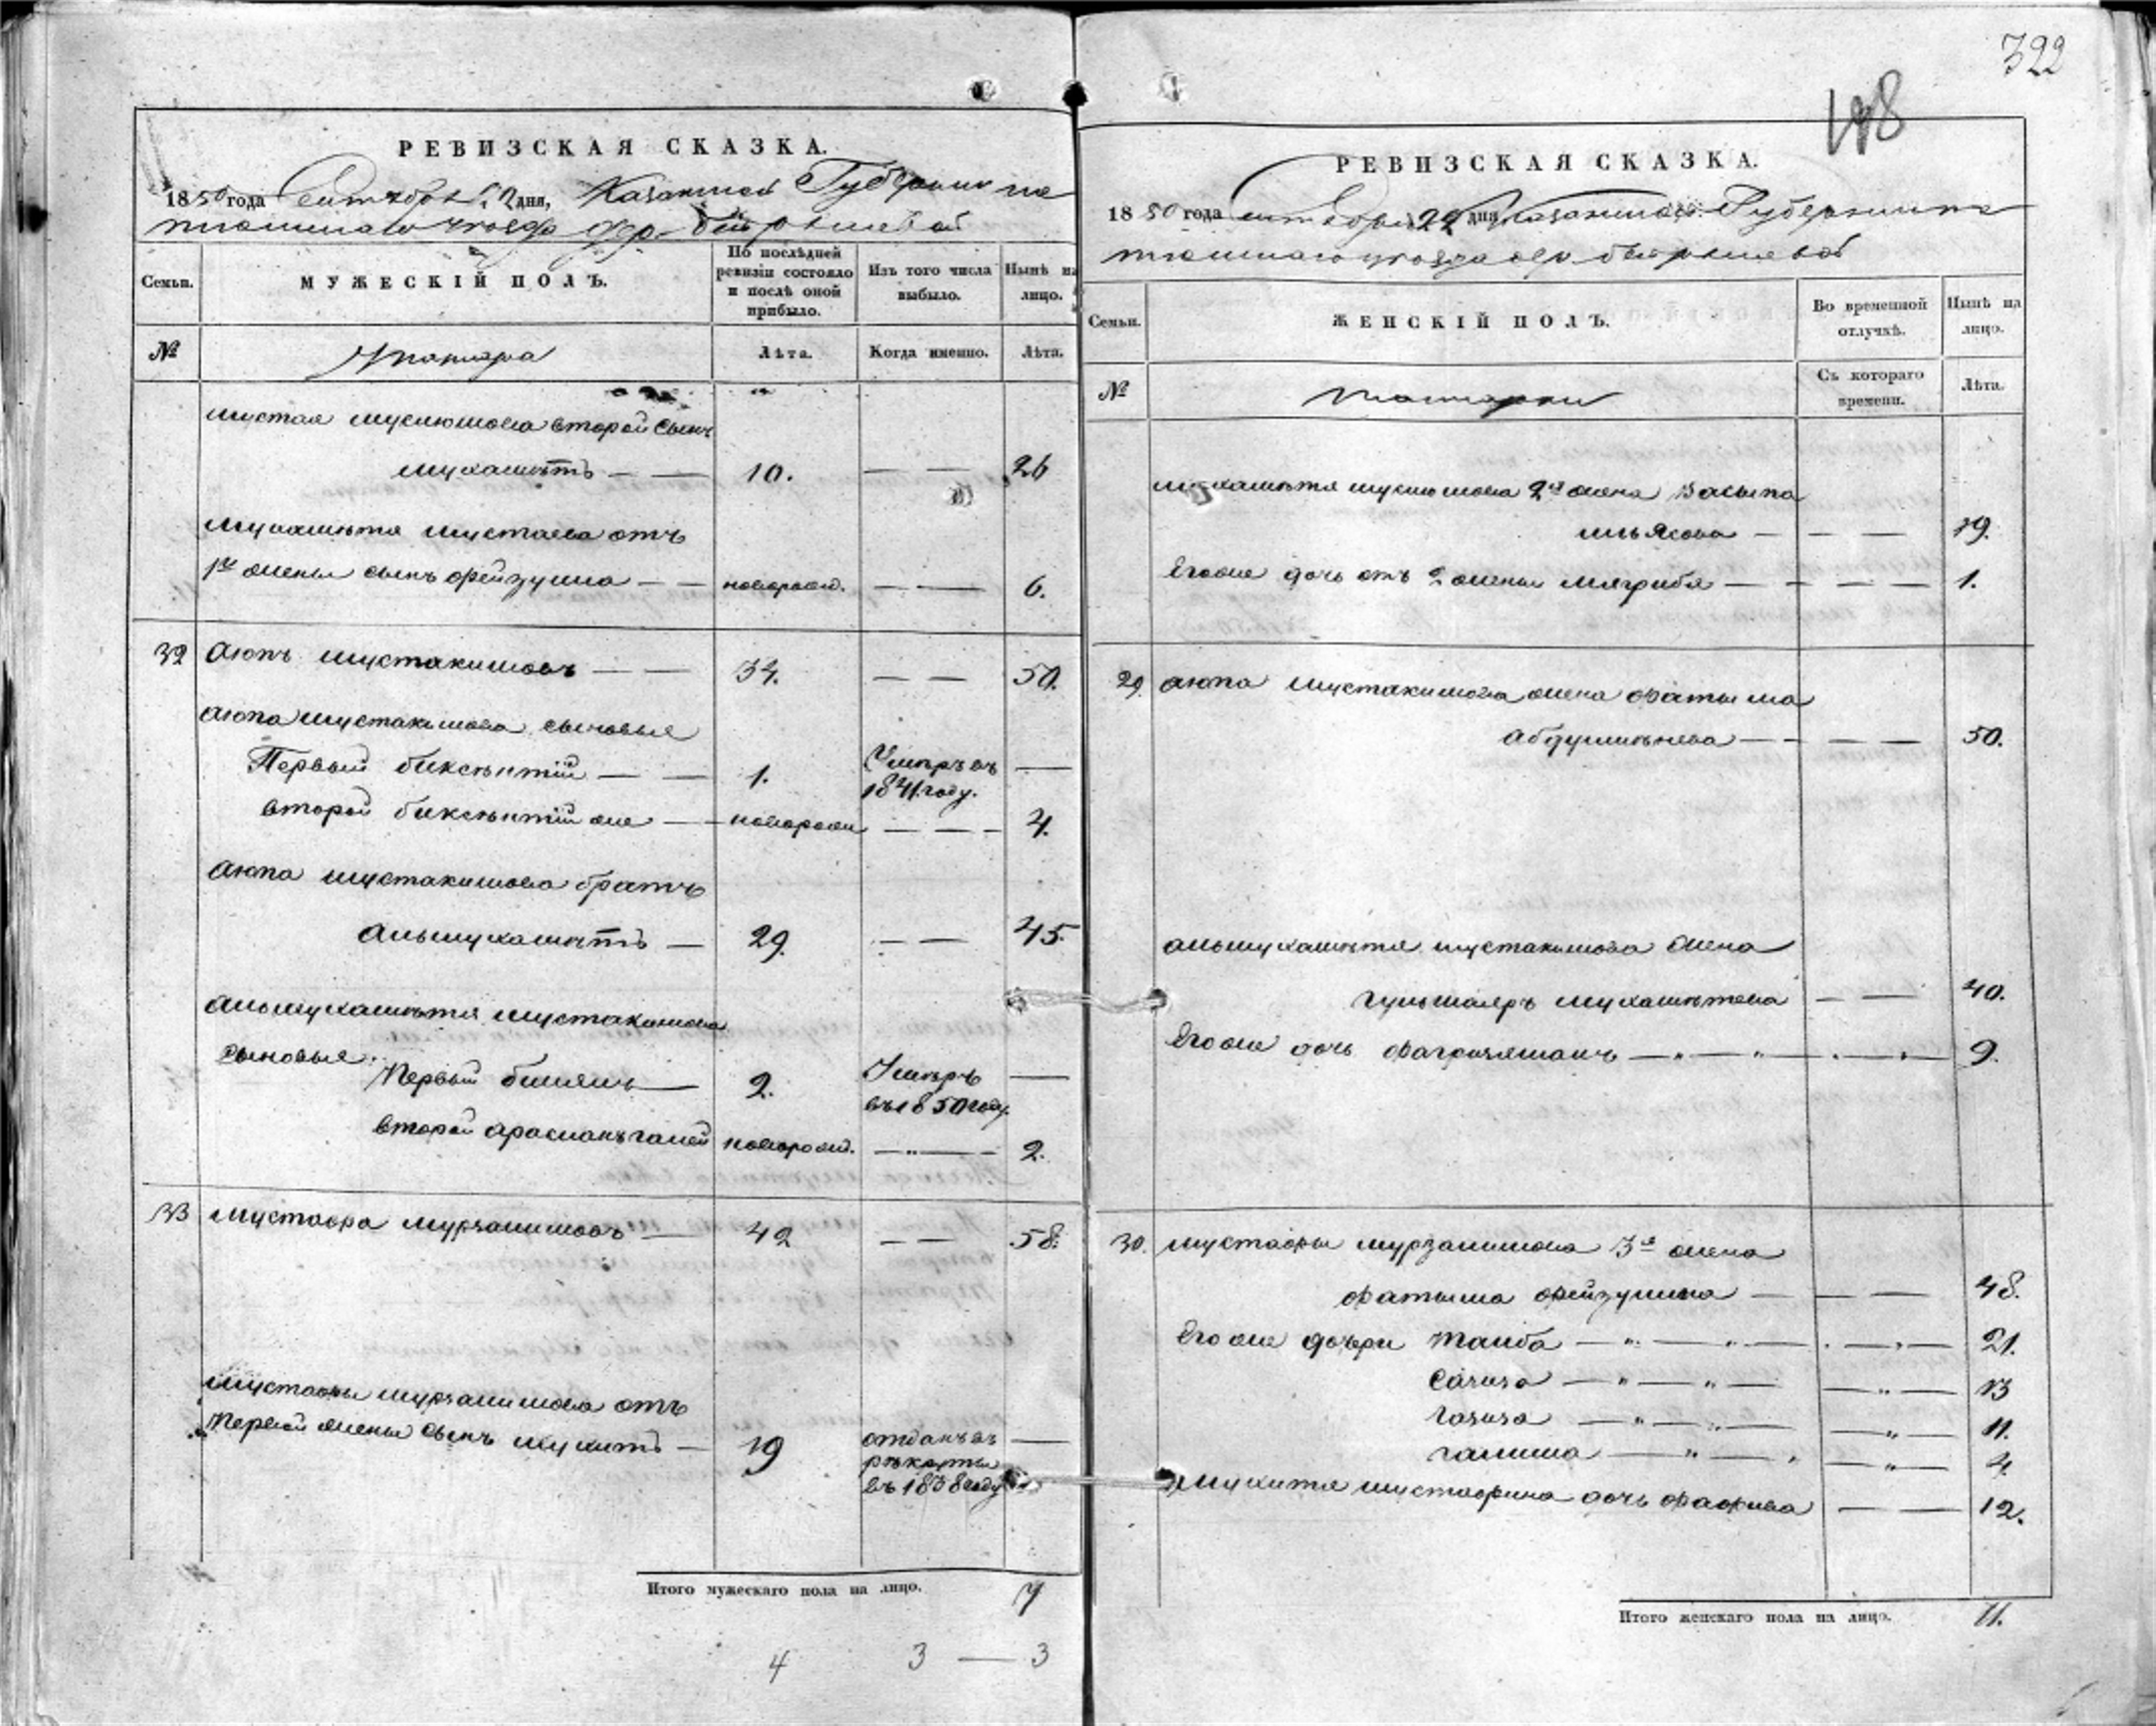 322
198
РЕВИЗСКАЯ СКАЗКА.
1850 года Сентября 22 дня, Казанской Губернии те
тюшинаго уезда дер.
Семьи.
МУЖЕСКІЙ ПОЛЪ.
По послѣдней ревизіи состояло и послѣ оной прибыло.
Изъ того числа выбыло.
Нынѣ на лицо.
№
Лѣта.
Когда именно.
Лѣта.
второй сынъ
мухаметъ — — 10. — — 26
мухаметя мустаева отъ
1й жены сынъ фейзулла — — новорожд. — — 6.
32 Аюпъ мустакимовъ — — 34. — — 50.
Аюпа мустакимова сыновья
Первый биксентій — — 1. Умеръ въ 1841 году. —
второй биксентій же — новорожд — — 4.
Аюпа мустакимова братъ
альмухаметъ — 29. — — 45.
альмухаметя мустакимова
сыновья
Первый — 2. Умеръ въ 1850 году. —
второй новорожд. — „ — 2.
33 Мустафа мурзалимовъ — 42 — — 58.
Мустафы мурзалимова отъ
Первой жены сынъ мухитъ — 19 отданъ въ рекруты въ 1838 году —
Итого мужескаго пола на лицо. 7
4 3 — 3
РЕВИЗСКАЯ СКАЗКА.
1850 года сентября 22 дня Казанской Губернии те
тюшинаго уезда дер.
Семьи.
ЖЕНСКІЙ ПОЛЪ.
Во временной отлучкѣ.
Нынѣ на лицо.
№
Татарки
Съ котораго времени.
Лѣта.
мухаметя 2я жена
ильясова — — — 19.
Его же дочь отъ 2 жены — — — 1.
29. аюпа мустакимова жена фатыма
— — — 50.
альмухаметя мустакимова жена
мухаметева — — 40.
Его же дочь — „ — „ — „ — „ — 9.
30. мустафы мурзалимова 3я жена
фатыма фейзуллина — — — 48.
Его же дочери Таиба — „ — „ — „ — „ — 21.
— „ — „ — — „ — 13
— „ — „ — — „ — 11.
галима — „ — „ — „ — 4.
мухитя мустафина дочь — — 12.
Итого женскаго пола на лицо. 11.